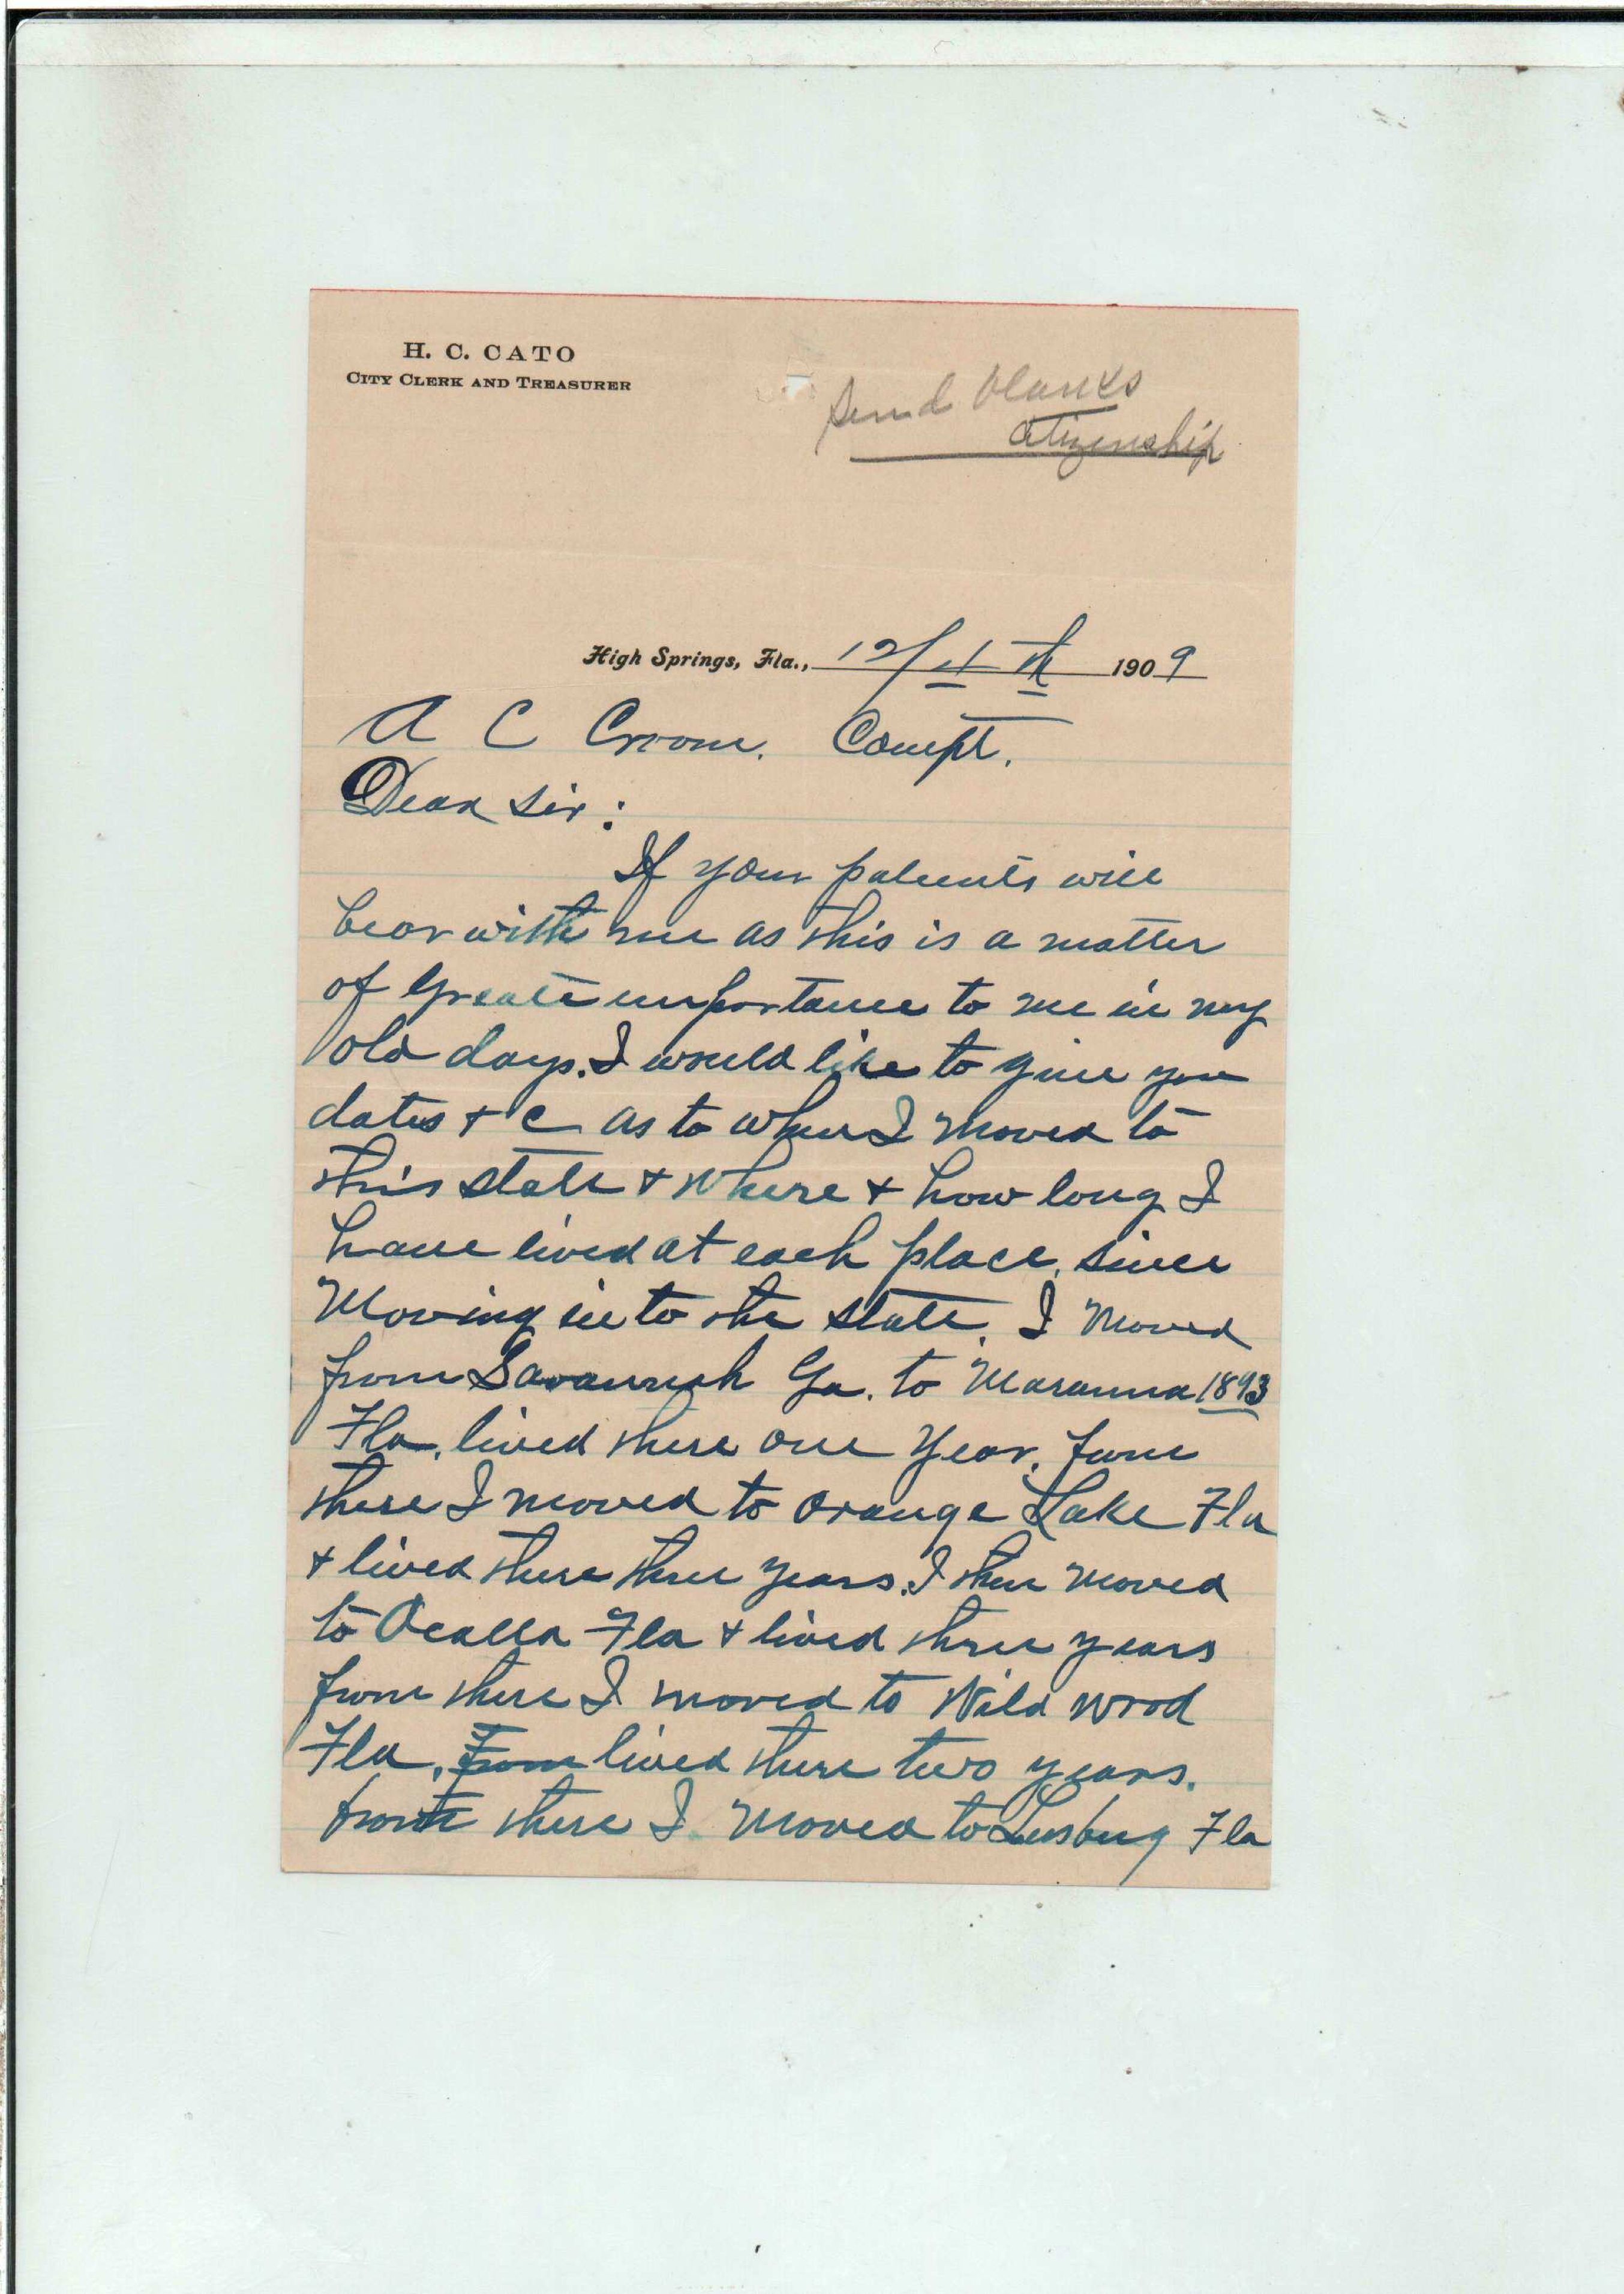 H. C. CATO
CITY CLERK AND TREASURER
Send blanks
citizenship
High Springs, Fla., 12/11th 1909
A C Croom. Compt.
Dear Sir:
If your patients will
bear with me as this is a matter
of Greate importance to me in my
old days. I would like to give you
dates + c as to when I moved to
this state + where + how long I
have lived at each place, since
Moving in to the state. I Moved
from Savannah Ga. to Maranna 1893
Fla. lived there one Year. from
there I moved to Orange Lake Fla
+ lived there three years. I then moved
to Ocalla Fla + lived three years
from there I moved to Wild wood
Fla, From lived there two years.
from there I Moved to Leesburg Fla